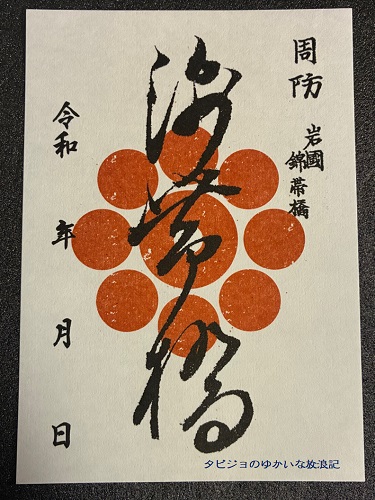 周防
岩國
錦帯橋
錦帯橋
令和 年 月 日
タビジョのゆかいな放浪記